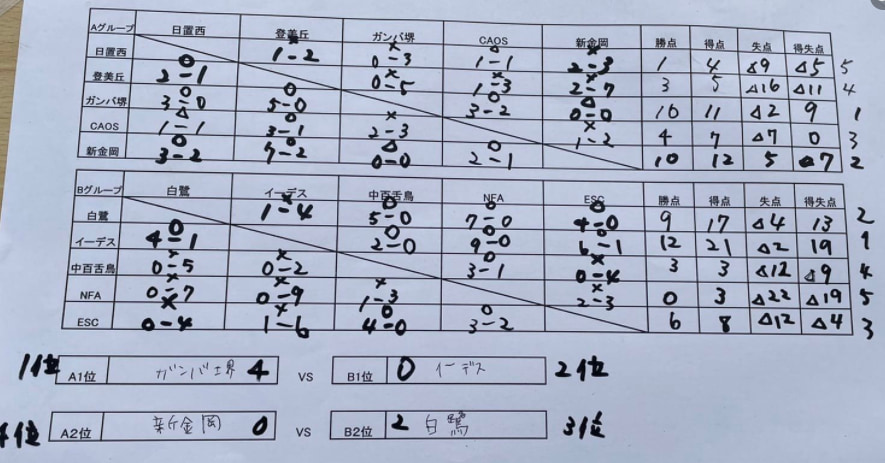 Aグループ 日置西 登美丘 ガンバ堺 CAOS 新金岡 勝点 得点 失点 得失点
日置西 × 1-2 × 0-3 △ 1-1 × 2-3 1 4 △9 △5 5
登美丘 ○ 2-1 × 0-5 × 1-3 × 2-7 3 5 △16 △11 4
ガンバ堺 ○ 3-0 ○ 5-0 ○ 3-2 △ 0-0 10 11 △2 9 1
CAOS △ 1-1 ○ 3-1 × 2-3 × 1-2 4 7 △7 0 3
新金岡 ○ 3-2 ○ 7-2 △ 0-0 ○ 2-1 10 12 5 7 2
Bグループ 白鷺 イーデス 中百舌鳥 NFA ESC 勝点 得点 失点 得失点
白鷺 × 1-4 ○ 5-0 ○ 7-0 ○ 4-0 9 17 △4 13 2
イーデス ○ 4-1 ○ 2-0 ○ 9-0 ○ 6-1 12 21 △2 19 1
中百舌鳥 × 0-5 × 0-2 ○ 3-1 × 0-4 3 3 △12 △9 4
NFA × 0-7 × 0-9 × 1-3 × 2-3 0 3 △22 △19 5
ESC × 0-4 × 1-6 ○ 4-0 ○ 3-2 6 8 △12 △4 3
1位 A1位 ガンバ堺 4 VS B1位 0 イーデス 2位
4位 A2位 新金岡 0 VS B2位 2 白鷺 3位